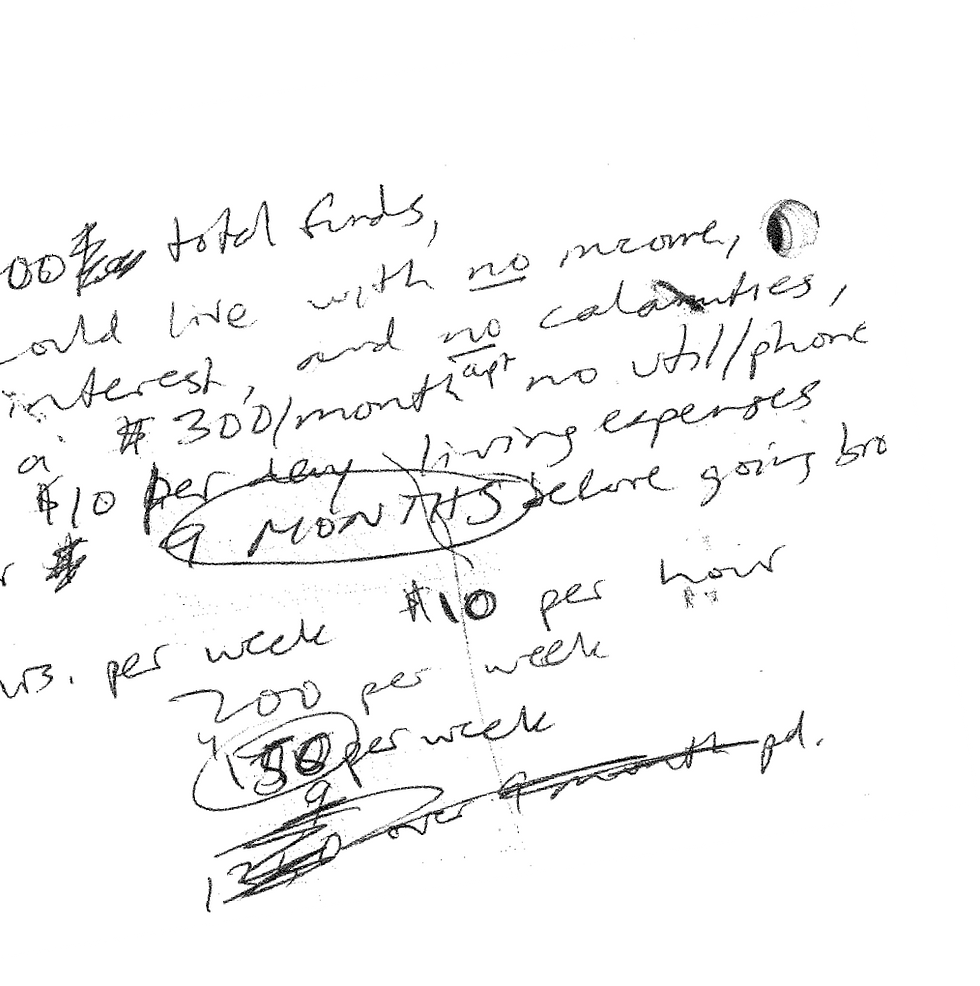 00 total funds,
ould live with no income,
interest, and no calamities,
a $300/month apt no util/phone
$10 per day living expenses
r $ 9 MONTHS before going bro
$10 per hour
urs. per week
200 per week
150 per week
9
over 9 month pd.